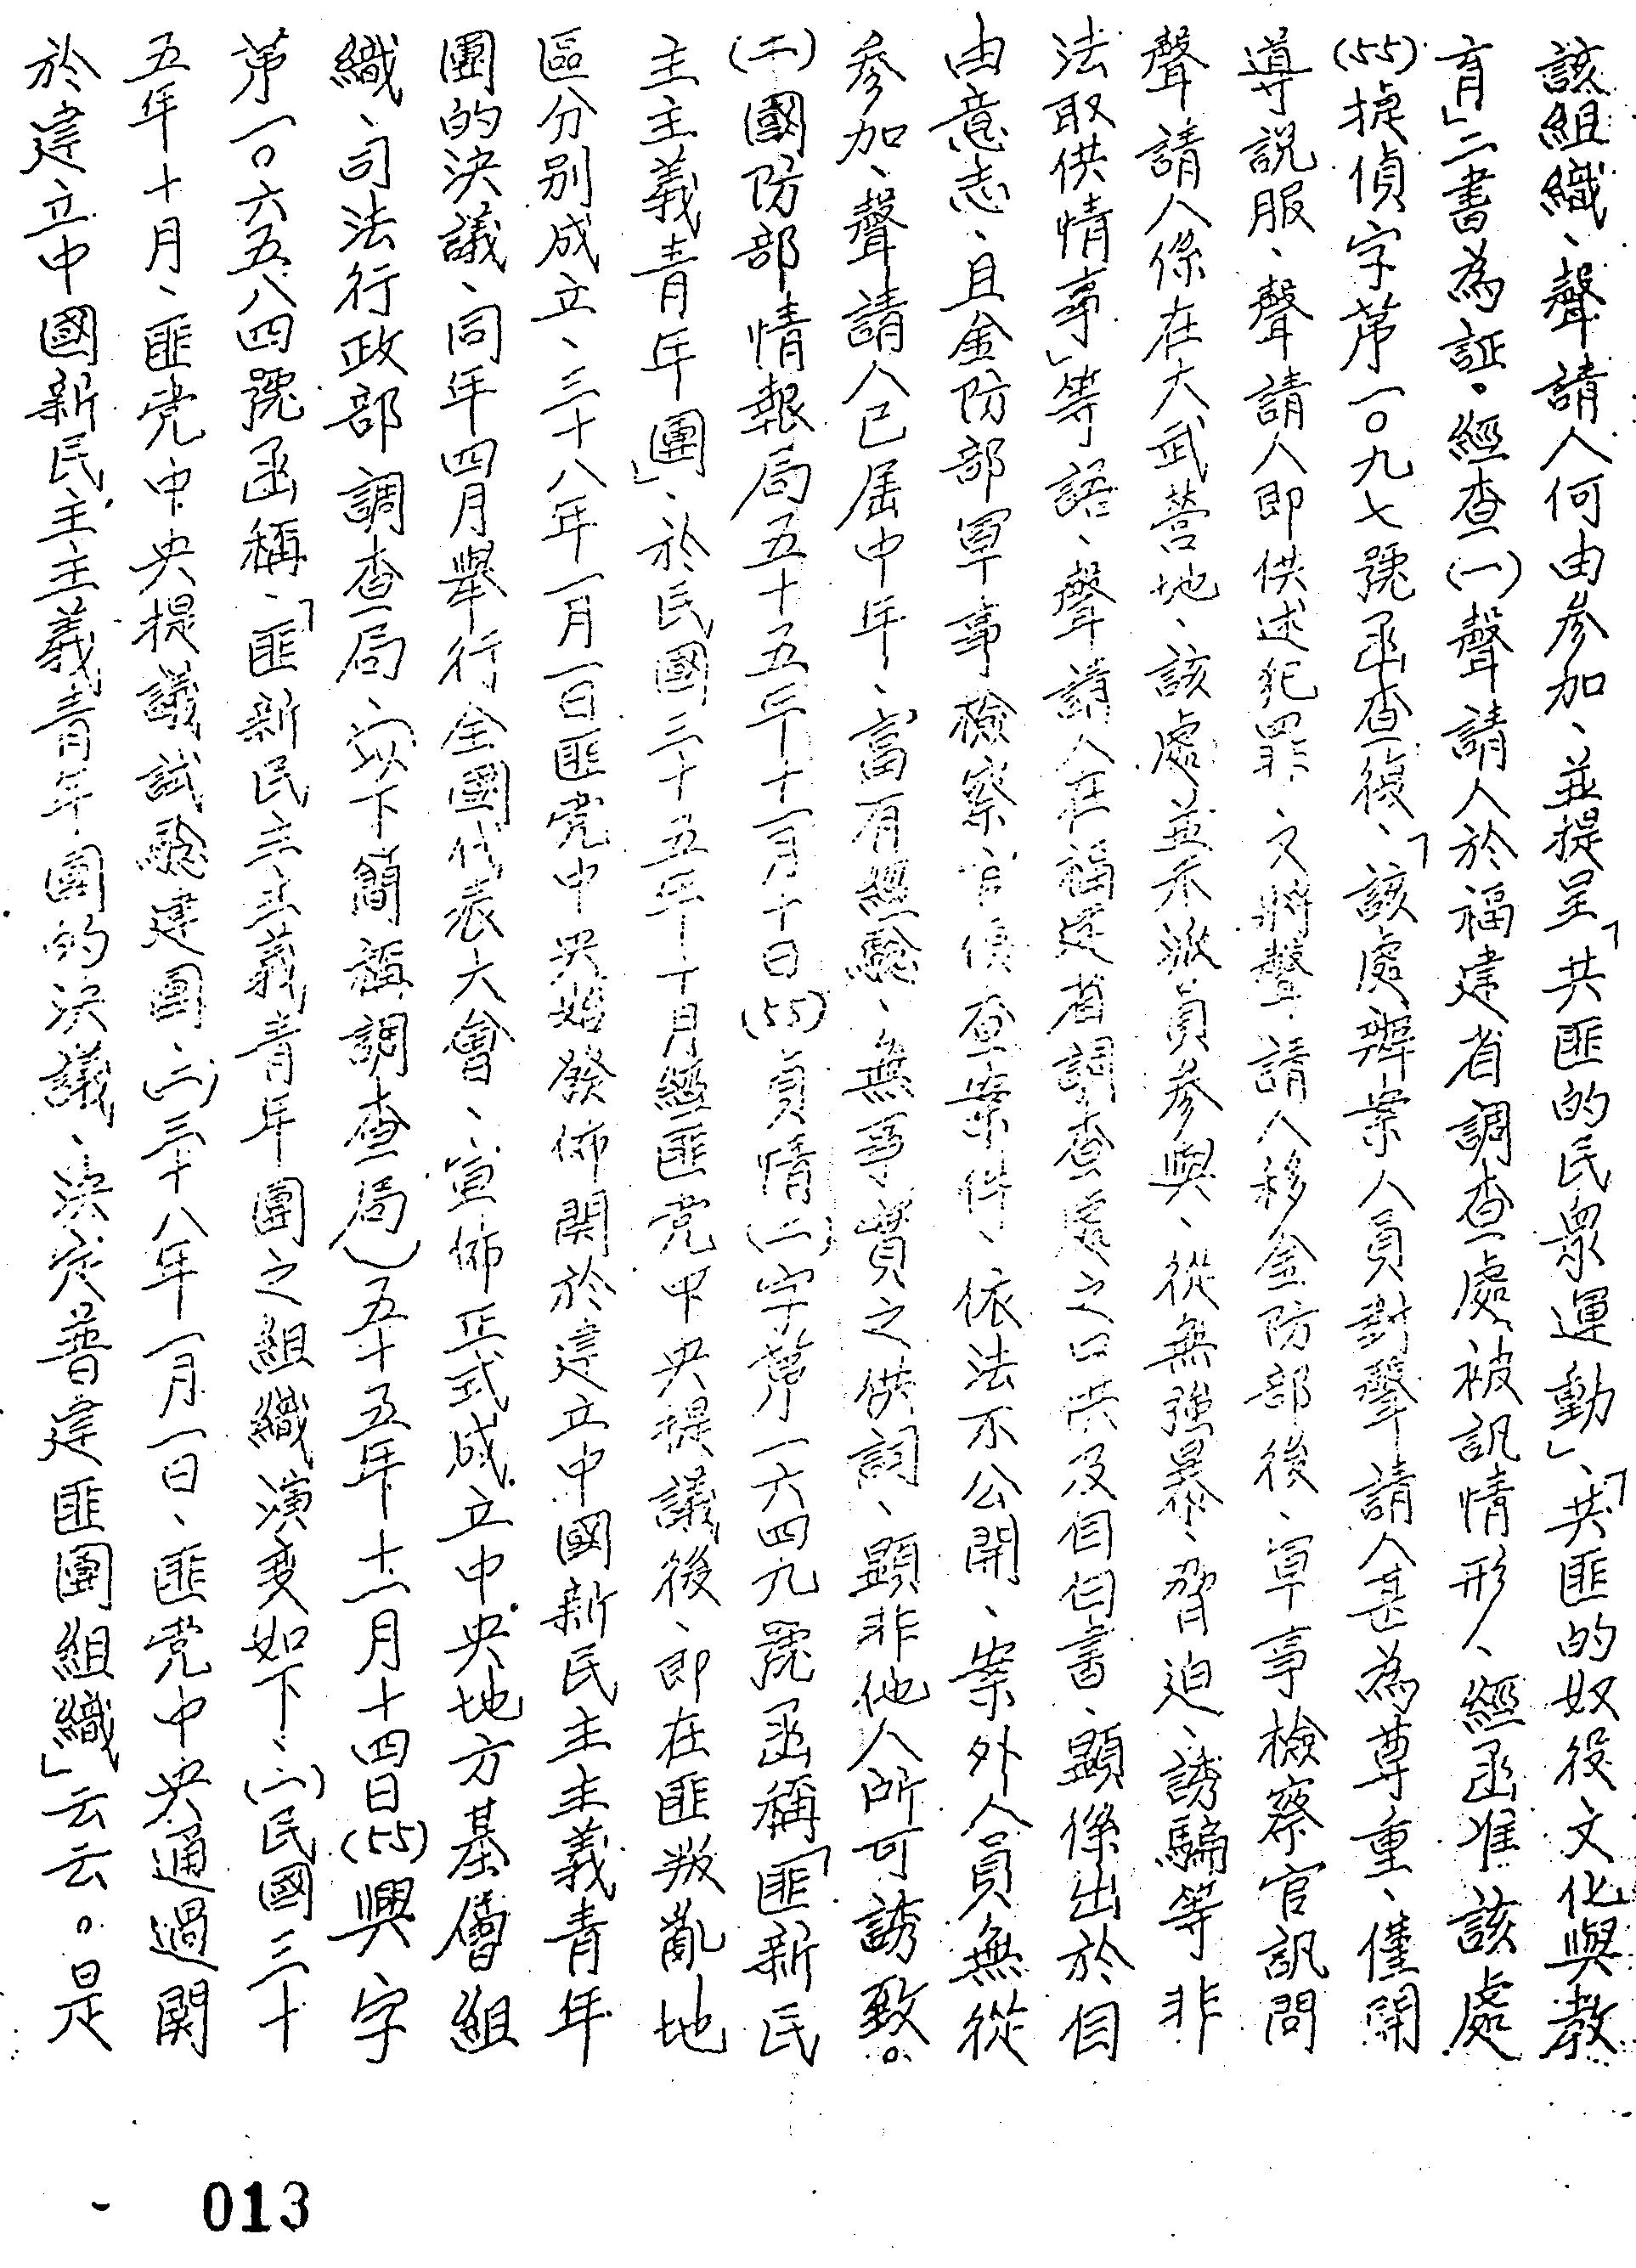 該組織、聲請人何由參加、並提呈「共匪的民眾運動」、「共匪的奴役文化與教
育」二書為証。經查(一)聲請人於福建省調查處被訊情形、經函准該處
(55)捷偵字第一〇九七號函查復、「該處辦案人員對聲請人甚為尊重、僅開
導説服、聲請人即供述犯罪、又將聲請人移金防部後、軍事檢察官訊問
聲請人係在大武營地、該處並不派員參與、從無強暴、脅迫、誘騙等非
法取供情事」等語、聲請人在福建省調查處之口供及自白書、顯係出於自
由意志、且金防部軍事檢察官偵查案件、依法不公開、案外人員無從
參加、聲請人已屆中年、富有經驗、無事實之供詞、顯非他人所可誘致。
(二)國防部情報局五十五年十一月十日(55)貞情(二)字第一六四九號函稱「匪新民
主主義青年團」、於民國三十五年十月經匪党中央提議後、即在匪叛亂地
區分別成立、三十八年一月一日匪党中央始發佈關於建立中國新民主主義青年
團的決議、同年四月舉行全國代表大會、宣佈正式成立中央地方基層組
織、司法行政部調查局、(以下簡稱調查局)五十五年十一月十四日(55)興字
第一〇六五八四號函稱、「匪新民主主義青年團之組織演變如下、(一)民國三十
五年十月、匪党中央提議試驗建團、(二)三十八年一月一日、匪党中央通過関
於建立中國新民主主義青年團的決議、決定普建匪團組織」云云。是
013